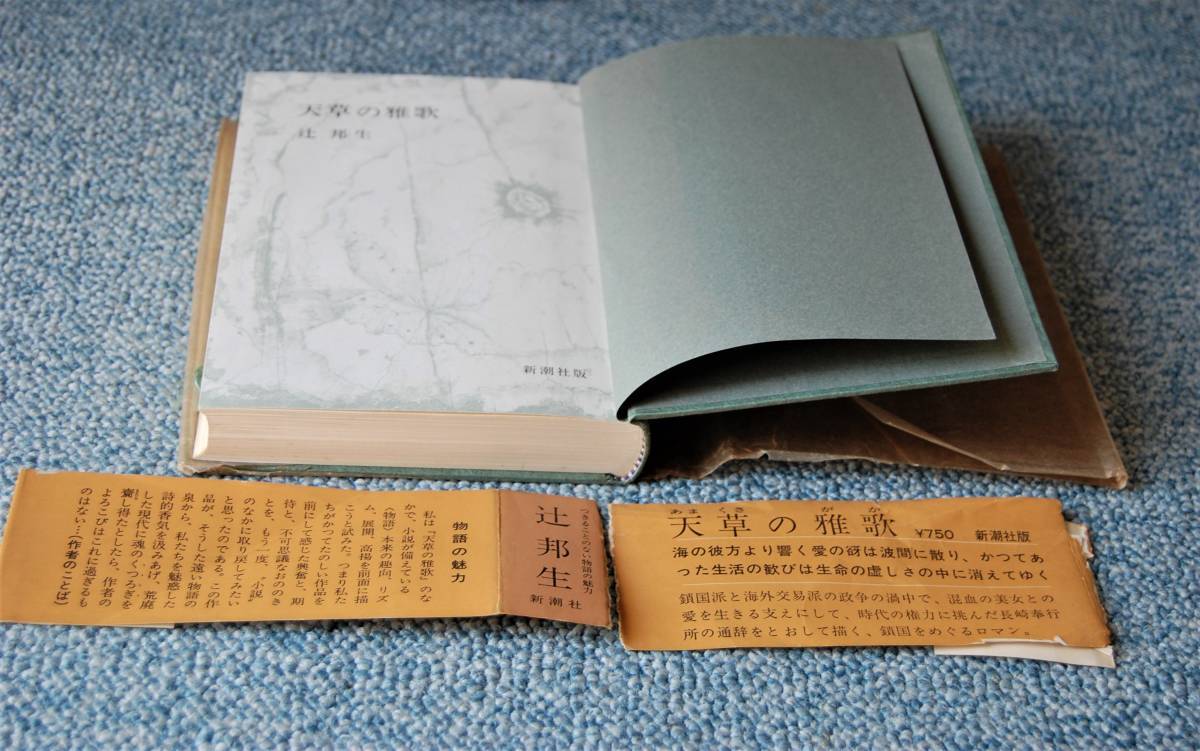 天草の雅歌
辻 邦生
新潮社版
物語の魅力
私は『天草の雅歌』のな
かで、小説が備えている
〈物語〉本来の趣向、リズ
ム、展開、高揚を前面に描
こうと試みた。つまり私た
ちがかつてたのしい作品を
前にして感じた興奮と、期
待と、不可思議なおののき
とを、もう一度、〝小説〟
のなかに取り戻してみたい
と思ったのである。この作
品が、そうした遠い物語の
泉から、私たちを魅惑した
詩的香気を汲みあげ、荒廃
した現代に魂のくつろぎを
齎し得たとしたら、作者の
よろこびはこれに過ぎるも
のはない…(作者のことば)
つきることのない物語の魅力
辻邦生
新潮社
あまくさ がか
天草の雅歌 ¥750 新潮社版
海の彼方より響く愛の谺は波間に散り、かつてあ
った生活の歓びは生命の虚しさの中に消えてゆく
鎖国派と海外交易派の政争の渦中で、混血の美女との
愛を生きる支えにして、時代の権力に挑んだ長崎奉行
所の通辞をとおして描く、鎖国をめぐるロマン。